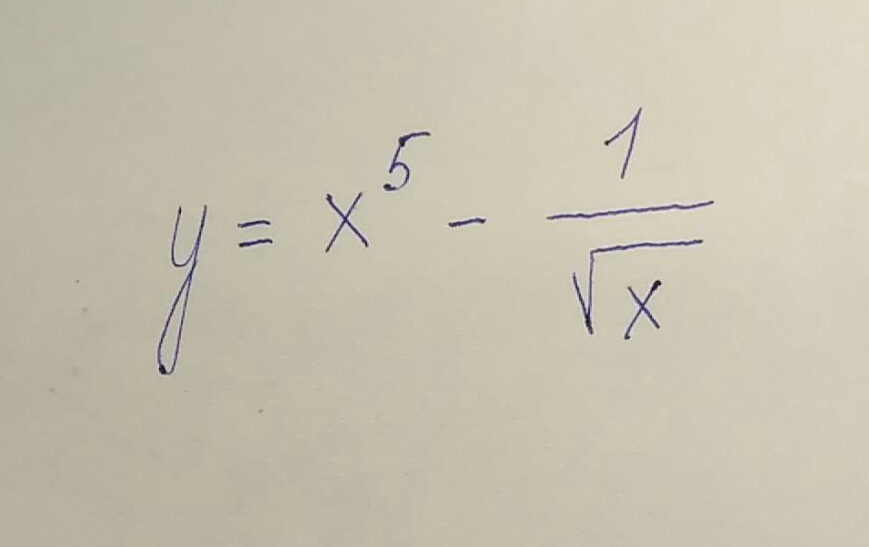 y = x⁵ - 1/√x